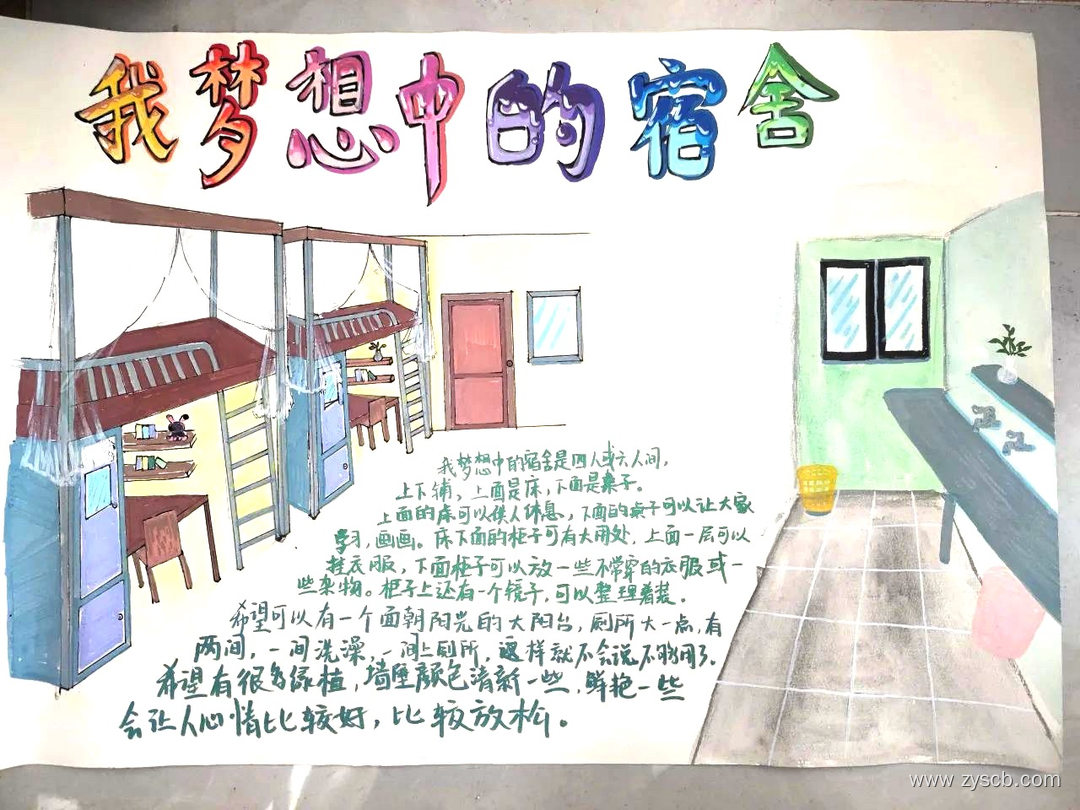 我梦想中的宿舍
我梦想中的宿舍是四人或六人间,
上下铺,上面是床,下面是桌子。
上面的床可以供人休息,下面的桌子可以让大家
学习,画画。床下面的柜子可有大用处,上面一层可以
挂衣服,下面柜子可以放一些不常穿的衣服或一
些杂物。柜子上还有一个镜子,可以整理着装。
希望可以有一个面朝阳光的大阳台,厕所大一点,有
两间,一间洗澡,一间上厕所,这样就不会说不够用了。
希望有很多绿植,墙壁颜色清新一些,鲜艳一些
会让人心情比较好,比较放松。
www.zyscb.com